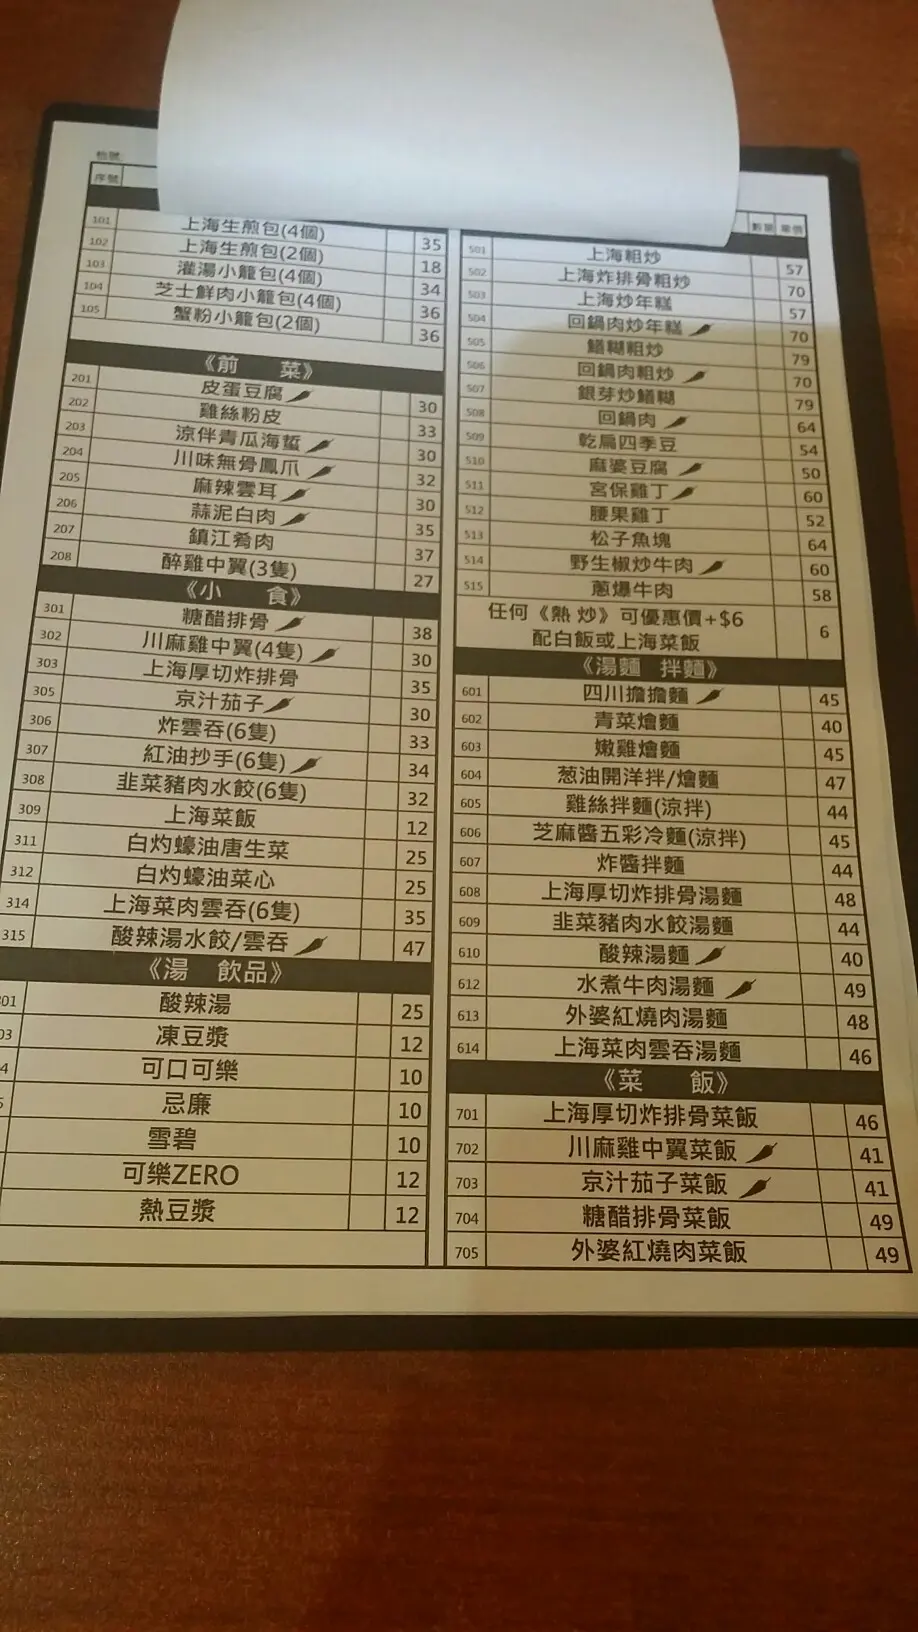 枱號
序號
101 上海生煎包(4個) 35
102 上海生煎包(2個) 18
103 灌湯小籠包(4個) 34
104 芝士鮮肉小籠包(4個) 36
105 蟹粉小籠包(2個) 36
《前 菜》
201 皮蛋豆腐 30
202 雞絲粉皮 33
203 涼伴青瓜海蜇 30
204 川味無骨鳳爪 32
205 麻辣雲耳 30
206 蒜泥白肉 35
207 鎮江肴肉 37
208 醉雞中翼(3隻) 27
《小 食》
301 糖醋排骨 38
302 川麻雞中翼(4隻) 30
303 上海厚切炸排骨 35
305 京汁茄子 30
306 炸雲吞(6隻) 33
307 紅油抄手(6隻) 34
308 韭菜豬肉水餃(6隻) 32
309 上海菜飯 12
311 白灼蠔油唐生菜 25
312 白灼蠔油菜心 25
314 上海菜肉雲吞(6隻) 35
315 酸辣湯水餃/雲吞 47
《湯 飲品》
01 酸辣湯 25
03 凍豆漿 12
4 可口可樂 10
忌廉 10
雪碧 10
可樂ZERO 12
熱豆漿 12
數量 單價
501 上海粗炒 57
502 上海炸排骨粗炒 70
503 上海炒年糕 57
504 回鍋肉炒年糕 70
505 鱔糊粗炒 79
506 回鍋肉粗炒 70
507 銀芽炒鱔糊 79
508 回鍋肉 64
509 乾扁四季豆 54
510 麻婆豆腐 50
511 宮保雞丁 60
512 腰果雞丁 52
513 松子魚塊 64
514 野生椒炒牛肉 60
515 蔥爆牛肉 58
任何《熱 炒》可優惠價+$6
配白飯或上海菜飯 6
《湯麵 拌麵》
601 四川擔擔麵 45
602 青菜燴麵 40
603 嫩雞燴麵 45
604 葱油開洋拌/燴麵 47
605 雞絲拌麵(涼拌) 44
606 芝麻醬五彩冷麵(涼拌) 45
607 炸醬拌麵 44
608 上海厚切炸排骨湯麵 48
609 韭菜豬肉水餃湯麵 44
610 酸辣湯麵 40
612 水煮牛肉湯麵 49
613 外婆紅燒肉湯麵 48
614 上海菜肉雲吞湯麵 46
《菜 飯》
701 上海厚切炸排骨菜飯 46
702 川麻雞中翼菜飯 41
703 京汁茄子菜飯 41
704 糖醋排骨菜飯 49
705 外婆紅燒肉菜飯 49